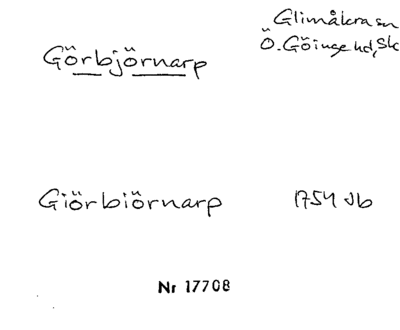 Glimåkra sn
Ö. Göinge hd, Sk
Görbjörnarp
Giörbiörnarp 1754 Jb
Nr 17708